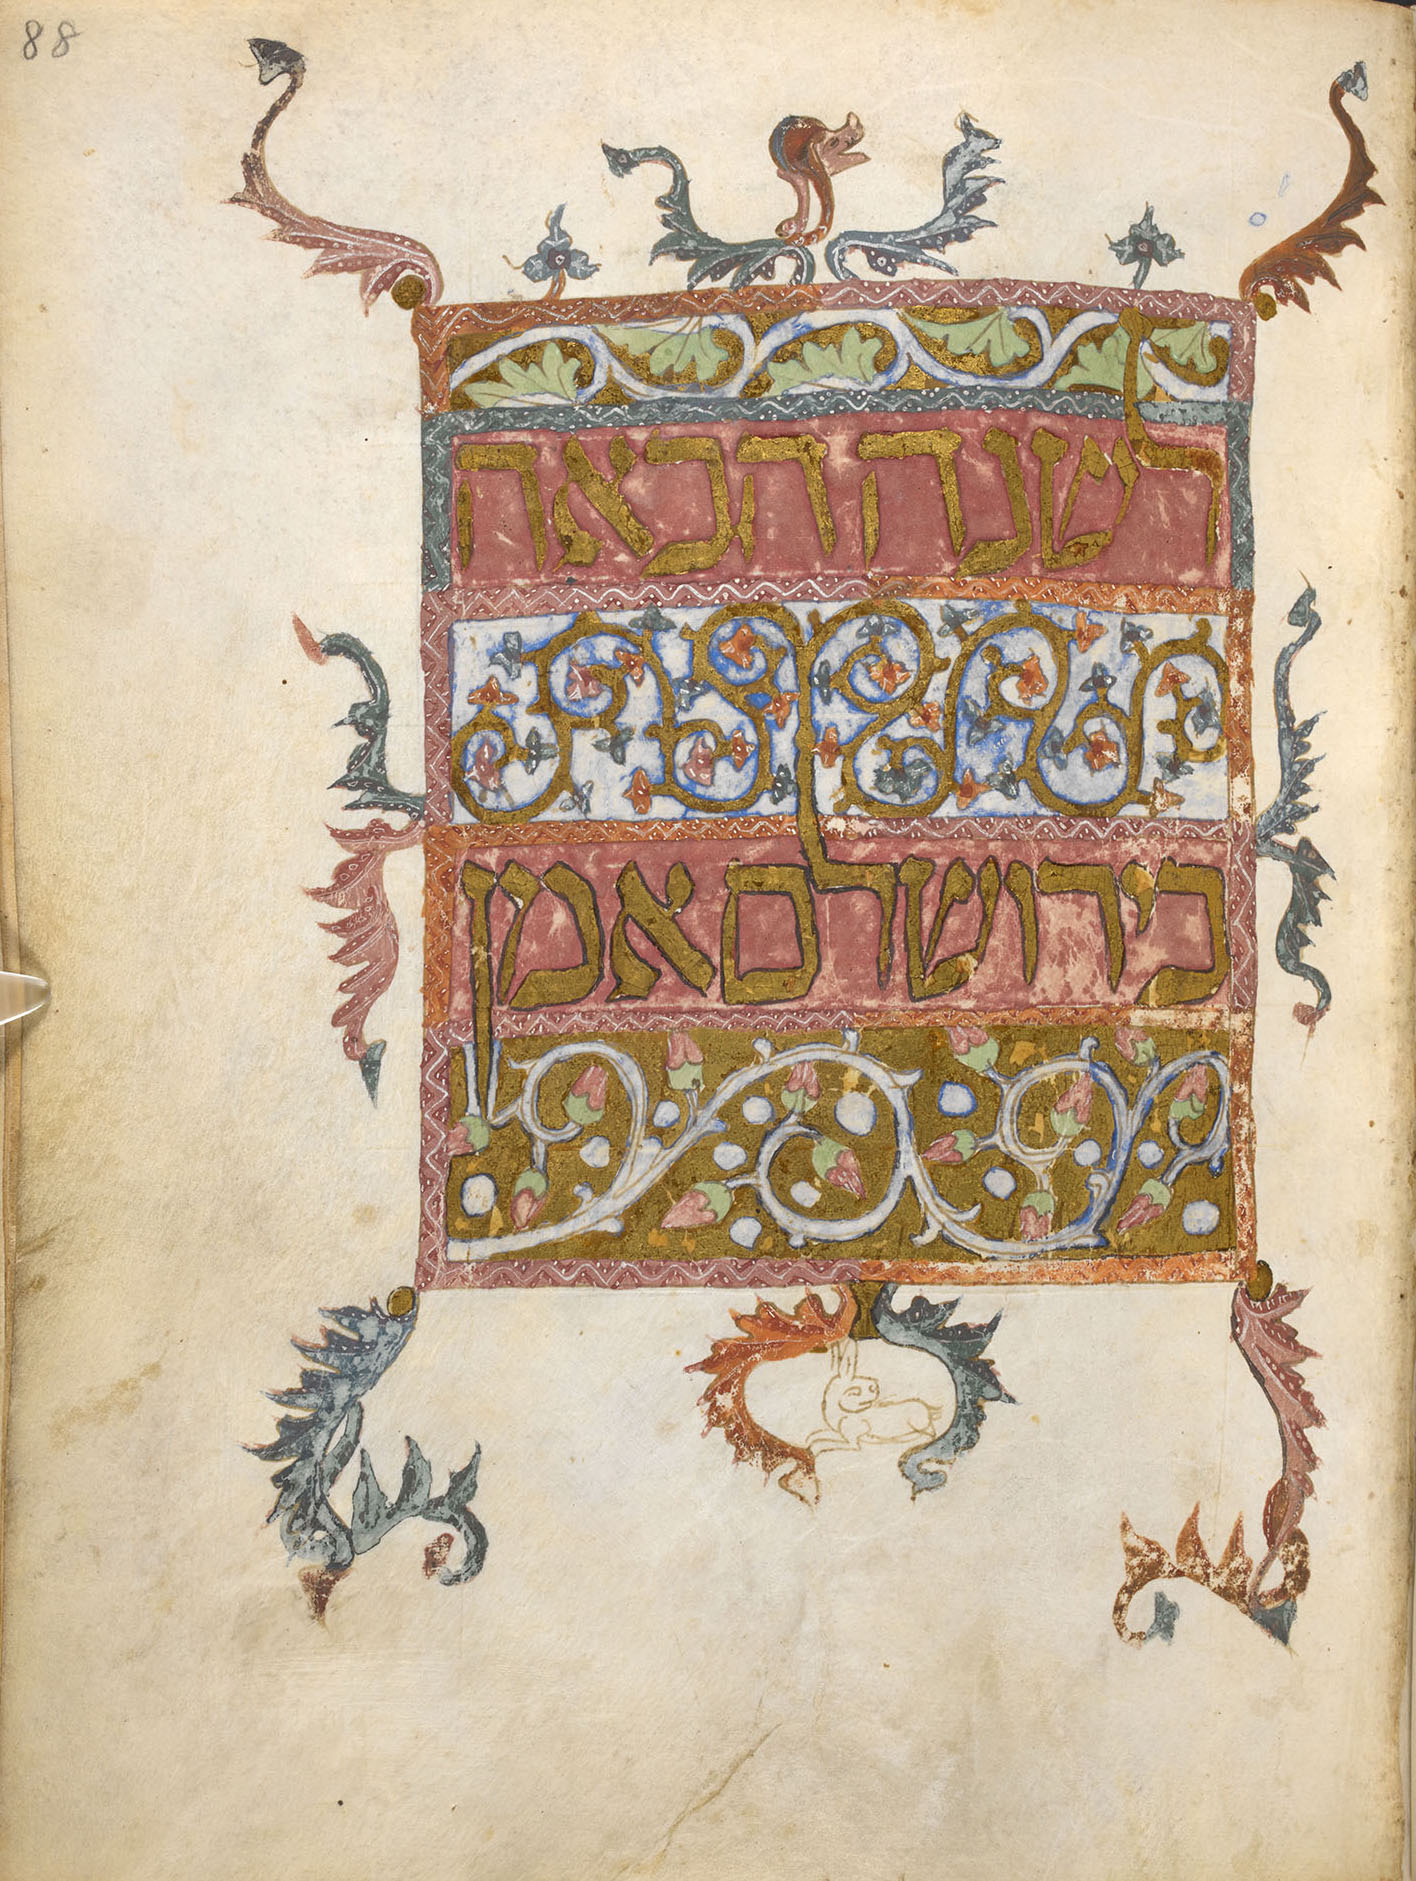 88
לשנה הבאה
בירושלם אמן